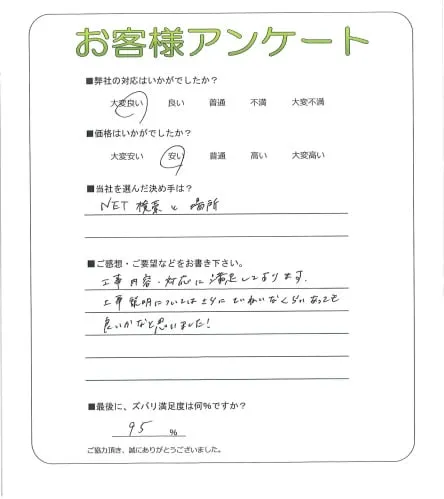 お客様アンケート
■弊社の対応はいかがでしたか？
大変良い 良い 普通 不満 大変不満
■価格はいかがでしたか？
大変安い 安い 普通 高い 大変高い
■当社を選んだ決め手は？
NET 検索と場所
■ご感想・ご要望などをお書き下さい。
工事内容・対応に満足しております.
工事説明については さらに ていねいなくらいあっても
良いかなと思いました!
■最後に、ズバリ満足度は何％ですか？
95 %
ご協力頂き、誠にありがとうございました。